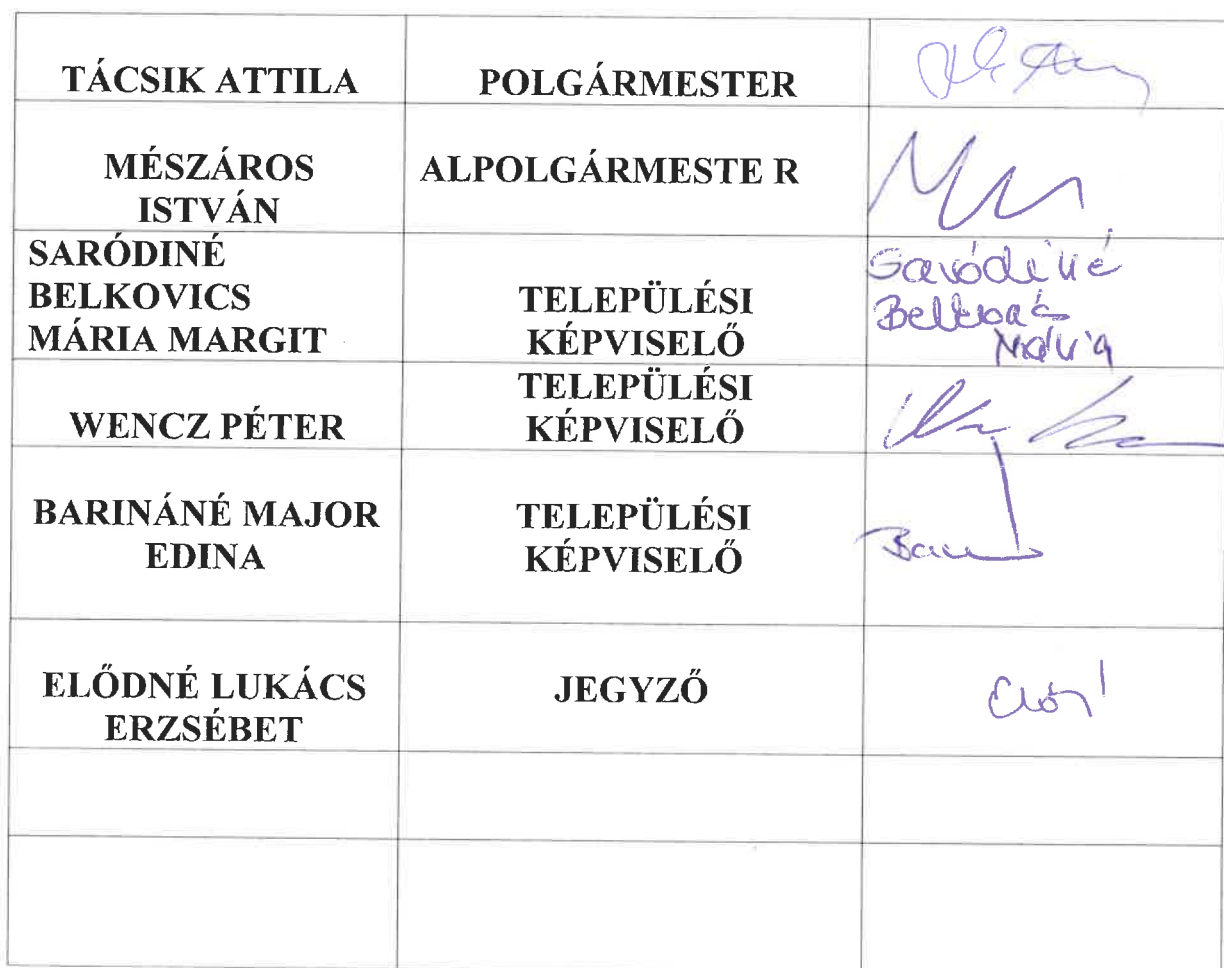 TÁCSIK ATTILA
POLGÁRMESTER
MÉSZÁROS
ISTVÁN
ALPOLGÁRMESTE R
SARÓDINÉ
BELKOVICS
MÁRIA MARGIT
TELEPÜLÉSI
KÉPVISELŐ
Saródiné
Mária
WENCZ PÉTER
TELEPÜLÉSI
KÉPVISELŐ
BARINÁNÉ MAJOR
EDINA
TELEPÜLÉSI
KÉPVISELŐ
ELŐDNÉ LUKÁCS
ERZSÉBET
JEGYZŐ